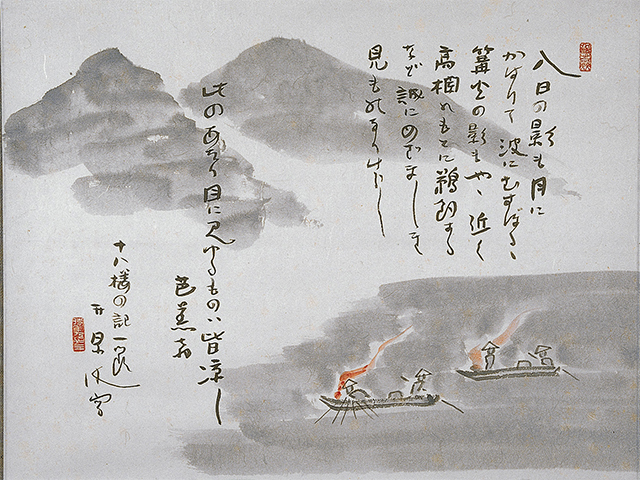 入日の影も月に
かはりて 波にむすぼるゝ
篝火の影もやゝ近く
高欄のもとに鵜飼する
など誠にめざましき
見ものなりけらし
此のあたり目に見ゆるものは皆涼し
芭蕉翁
十八楼の記一節